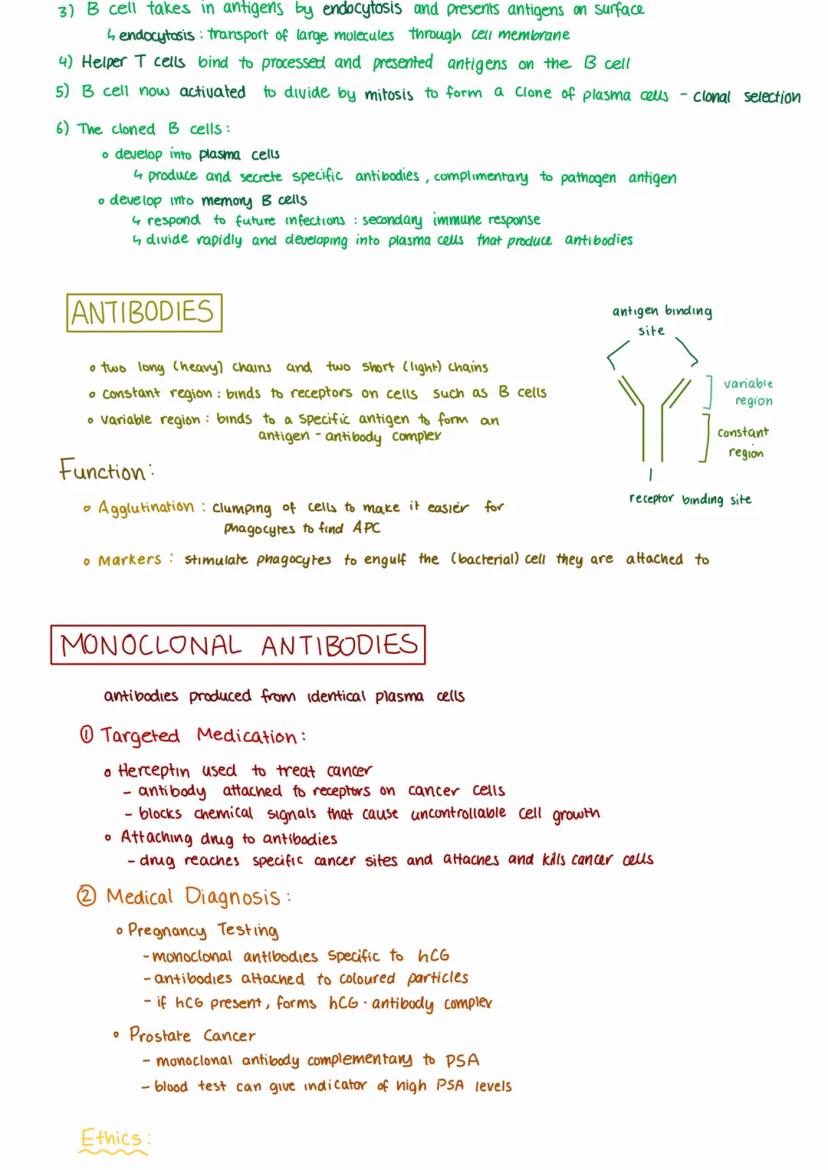 3) B cell takes in antigens by endocytosis and presents antigens on surface
↳ endocytosis : transport of large molecules through cell membrane
4) Helper T cells bind to processed and presented antigens on the B cell
5) B cell now activated to divide by mitosis to form a clone of plasma cells - clonal selection
6) The cloned B cells :
o develop into plasma cells
↳ produce and secrete specific antibodies , complimentary to pathogen antigen
o develop into memory B cells
↳ respond to future infections : secondary immune response
↳ divide rapidly and developing into plasma cells that produce antibodies
ANTIBODIES
o two long (heavy) chains and two short (light) chains
o constant region : binds to receptors on cells such as B cells
o variable region : binds to a specific antigen to form an
antigen - antibody complex
antigen binding
site
variable
region
constant
region
receptor binding site
Function :
o Agglutination : clumping of cells to make it easier for
phagocytes to find APC
o Markers : stimulate phagocytes to engulf the (bacterial) cell they are attached to
MONOCLONAL ANTIBODIES
antibodies produced from identical plasma cells
① Targeted Medication :
o Herceptin used to treat cancer
- antibody attached to receptors on cancer cells
- blocks chemical signals that cause uncontrollable cell growth
o Attaching drug to antibodies
- drug reaches specific cancer sites and attaches and kills cancer cells
② Medical Diagnosis :
o Pregnancy Testing
- monoclonal antibodies specific to hCG
- antibodies attached to coloured particles
- if hCG present, forms hCG - antibody complex
o Prostate Cancer
- monoclonal antibody complementary to PSA
- blood test can give indicator of high PSA levels
Ethics :